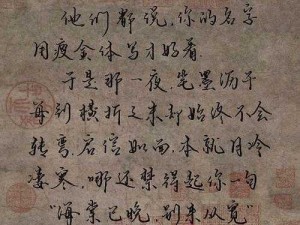 他们都说，你的名字
用瘦金体写才好看
于是那一夜，笔墨沥干
每到横折之末却始终不会
转弯，启信如面，本就月冷
凄寒，哪还禁得起你一句
“海棠已晚，别来从宽”